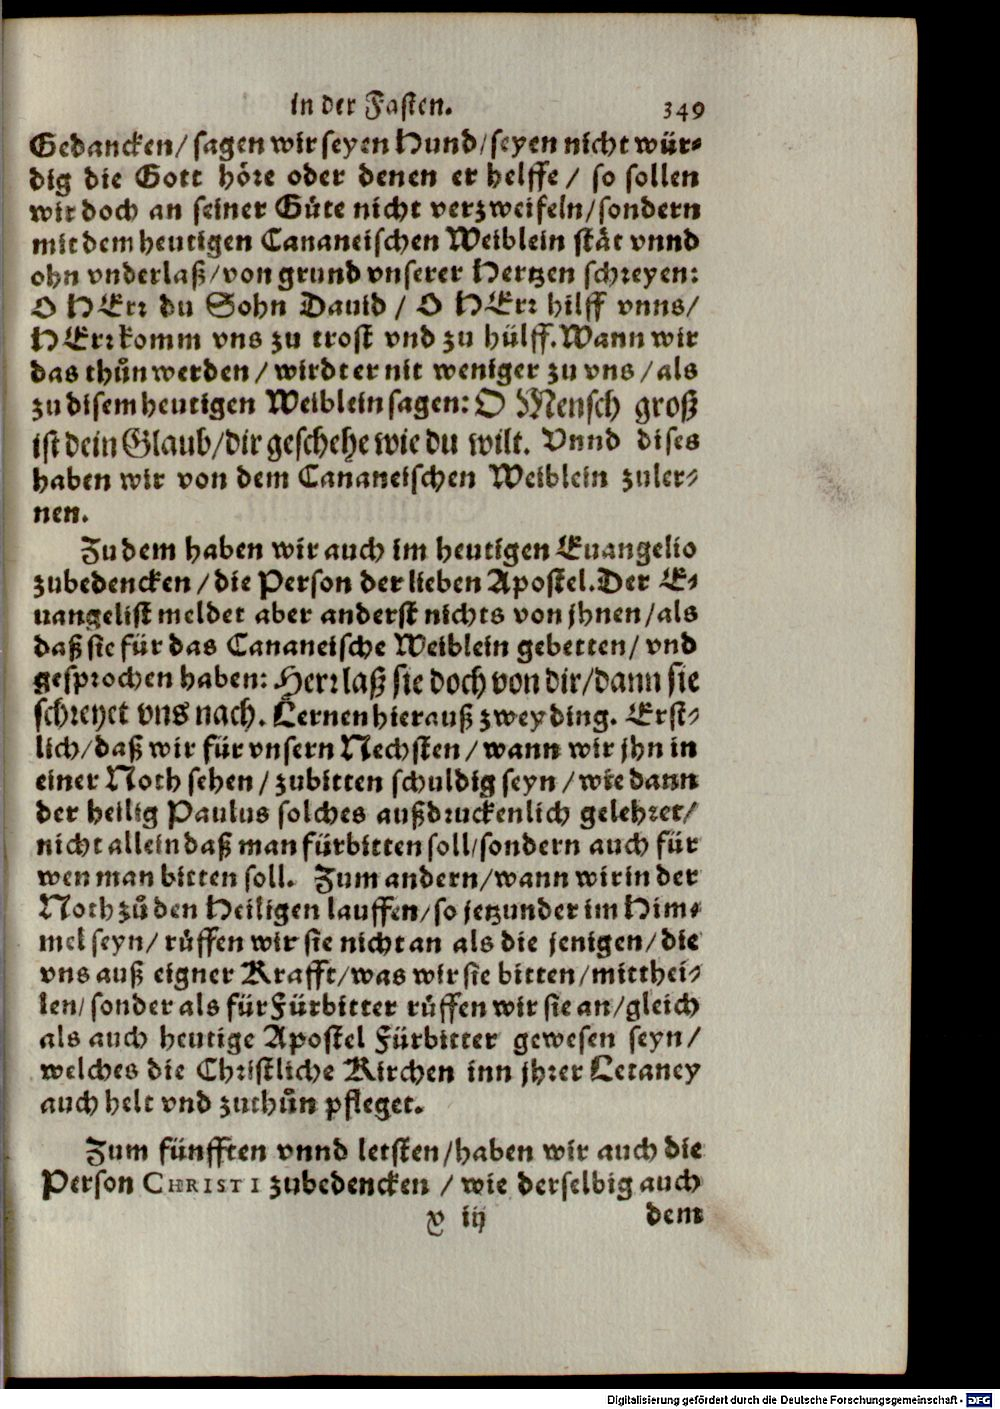 in der Fasten. 349
Gedancken/ sagen wir seyen Hund/ seyen nicht wür-
dig die Gott höre oder denen er helffe / so sollen
wir doch an seiner Güte nicht verzweifeln/ sondern
mit dem heutigen Cananeischen Weiblein stät vnnd
ohn vnderlaß/ von grund vnserer Hertzen schreyen:
O HErr du Sohn Dauid / O HErr hilff vnns/
HErr komm vns zu trost vnd zu hülff. Wann wir
das thůn werden / wirdt er nit weniger zu vns / als
zu disem heutigen Weiblein sagen: O Mensch groß
ist dein Glaub/ dir geschehe wie du wilt. Vnnd dises
haben wir von dem Cananeischen Weiblein zuler-
nen.
Zu dem haben wir auch im heutigen Euangelio
zubedencken / die Person der lieben Apostel. Der E-
uangelist meldet aber anderst nichts von jhnen/ als
daß sie für das Cananeische Weiblein gebetten/ vnd
gesprochen haben: Herr laß sie doch von dir/ dann sie
schreyet vns nach. Lernen hierauß zwey ding. Erst-
lich/ daß wir für vnsern Nechsten / wann wir jhn in
einer Noth sehen / zubitten schuldig seyn / wie dann
der heilig Paulus solches außdruckenlich gelehret/
nicht allein daß man fürbitten soll/ sondern auch für
wen man bitten soll. Zum andern/ wann wir in der
Noth zů den Heiligen lauffen/ so jetzunder im Him-
mel seyn/ růffen wir sie nicht an als die jenigen/ die
vns auß eigner Krafft/ was wir sie bitten/ mitthei-
len/ sonder als für Fürbitter růffen wir sie an/ gleich
als auch heutige Apostel Fürbitter gewesen seyn/
welches die Christliche Kirchen inn jhrer Letaney
auch helt vnd zuthůn pfleget.
Zum fünfften vnnd letsten/ haben wir auch die
Person CHRISTI zubedencken / wie derselbig auch
y iij dem
Digitalisierung gefördert durch die Deutsche Forschungsgemeinschaft - DFG